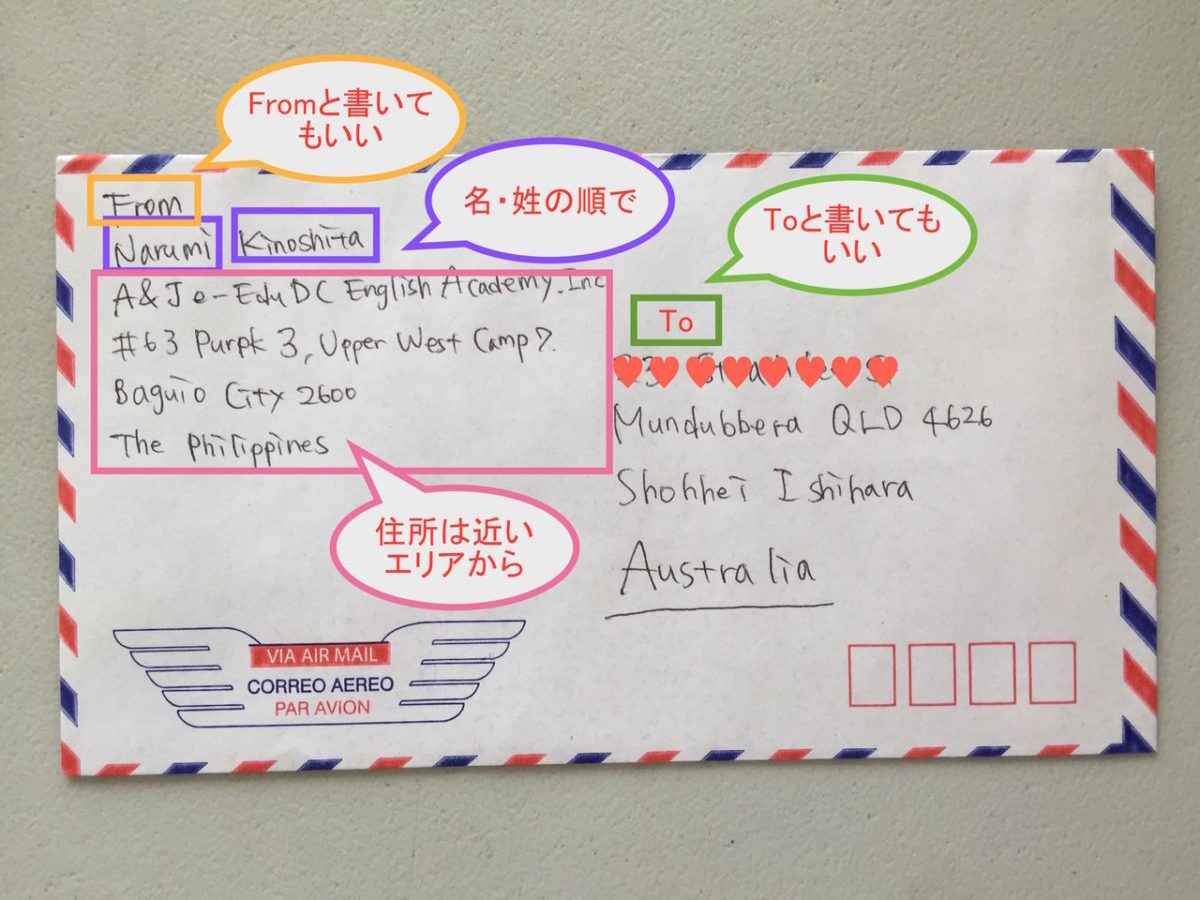 Fromと書いて
もいい
名・姓の順で
Toと書いても
いい
From
Narumi Kinoshita
A & J e-EduDC English Academy.Inc
#63 Purok 3, Upper West Camp 7.
Baguio City 2600
The Philippines
住所は近い
エリアから
To
Mundubbera QLD 4626
Shohhei Ishihara
Australia
VIA AIR MAIL
CORREO AEREO
PAR AVION